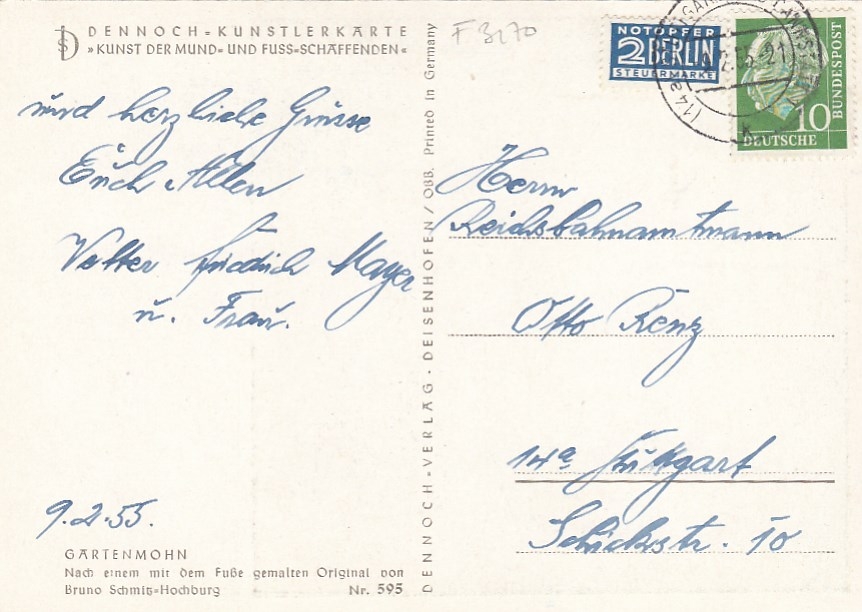 DENNOCH=KUNSTLERKARTE
»KUNST DER MUND= UND FUSS=SCHAFFENDEN«
und herzliche Grüsse
Euch Allen
Vetter Friedrich Mayer
u. Frau.
9.2.55.
GARTENMOHN
Nach einem mit dem Fuße gemalten Original von
Bruno Schmitz=Hochburg Nr. 595
DENNOCH-VERLAG - DEISENHOFEN / OBB. Printed in Germany
F 3270
NOTOPFER
2 BERLIN
STEUERMARKE
DEUTSCHE
BUNDESPOST
10
(14a)
Herrn
Reichsbahnamtmann
Otto Renz
14a Stuttgart
Schickstr. 10